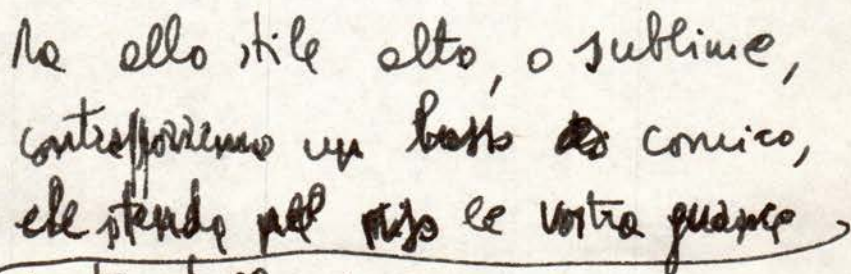 Ma allo stile alto, o sublime,
contrapporremo un basso comico,
che stende nel riso le vostre guance